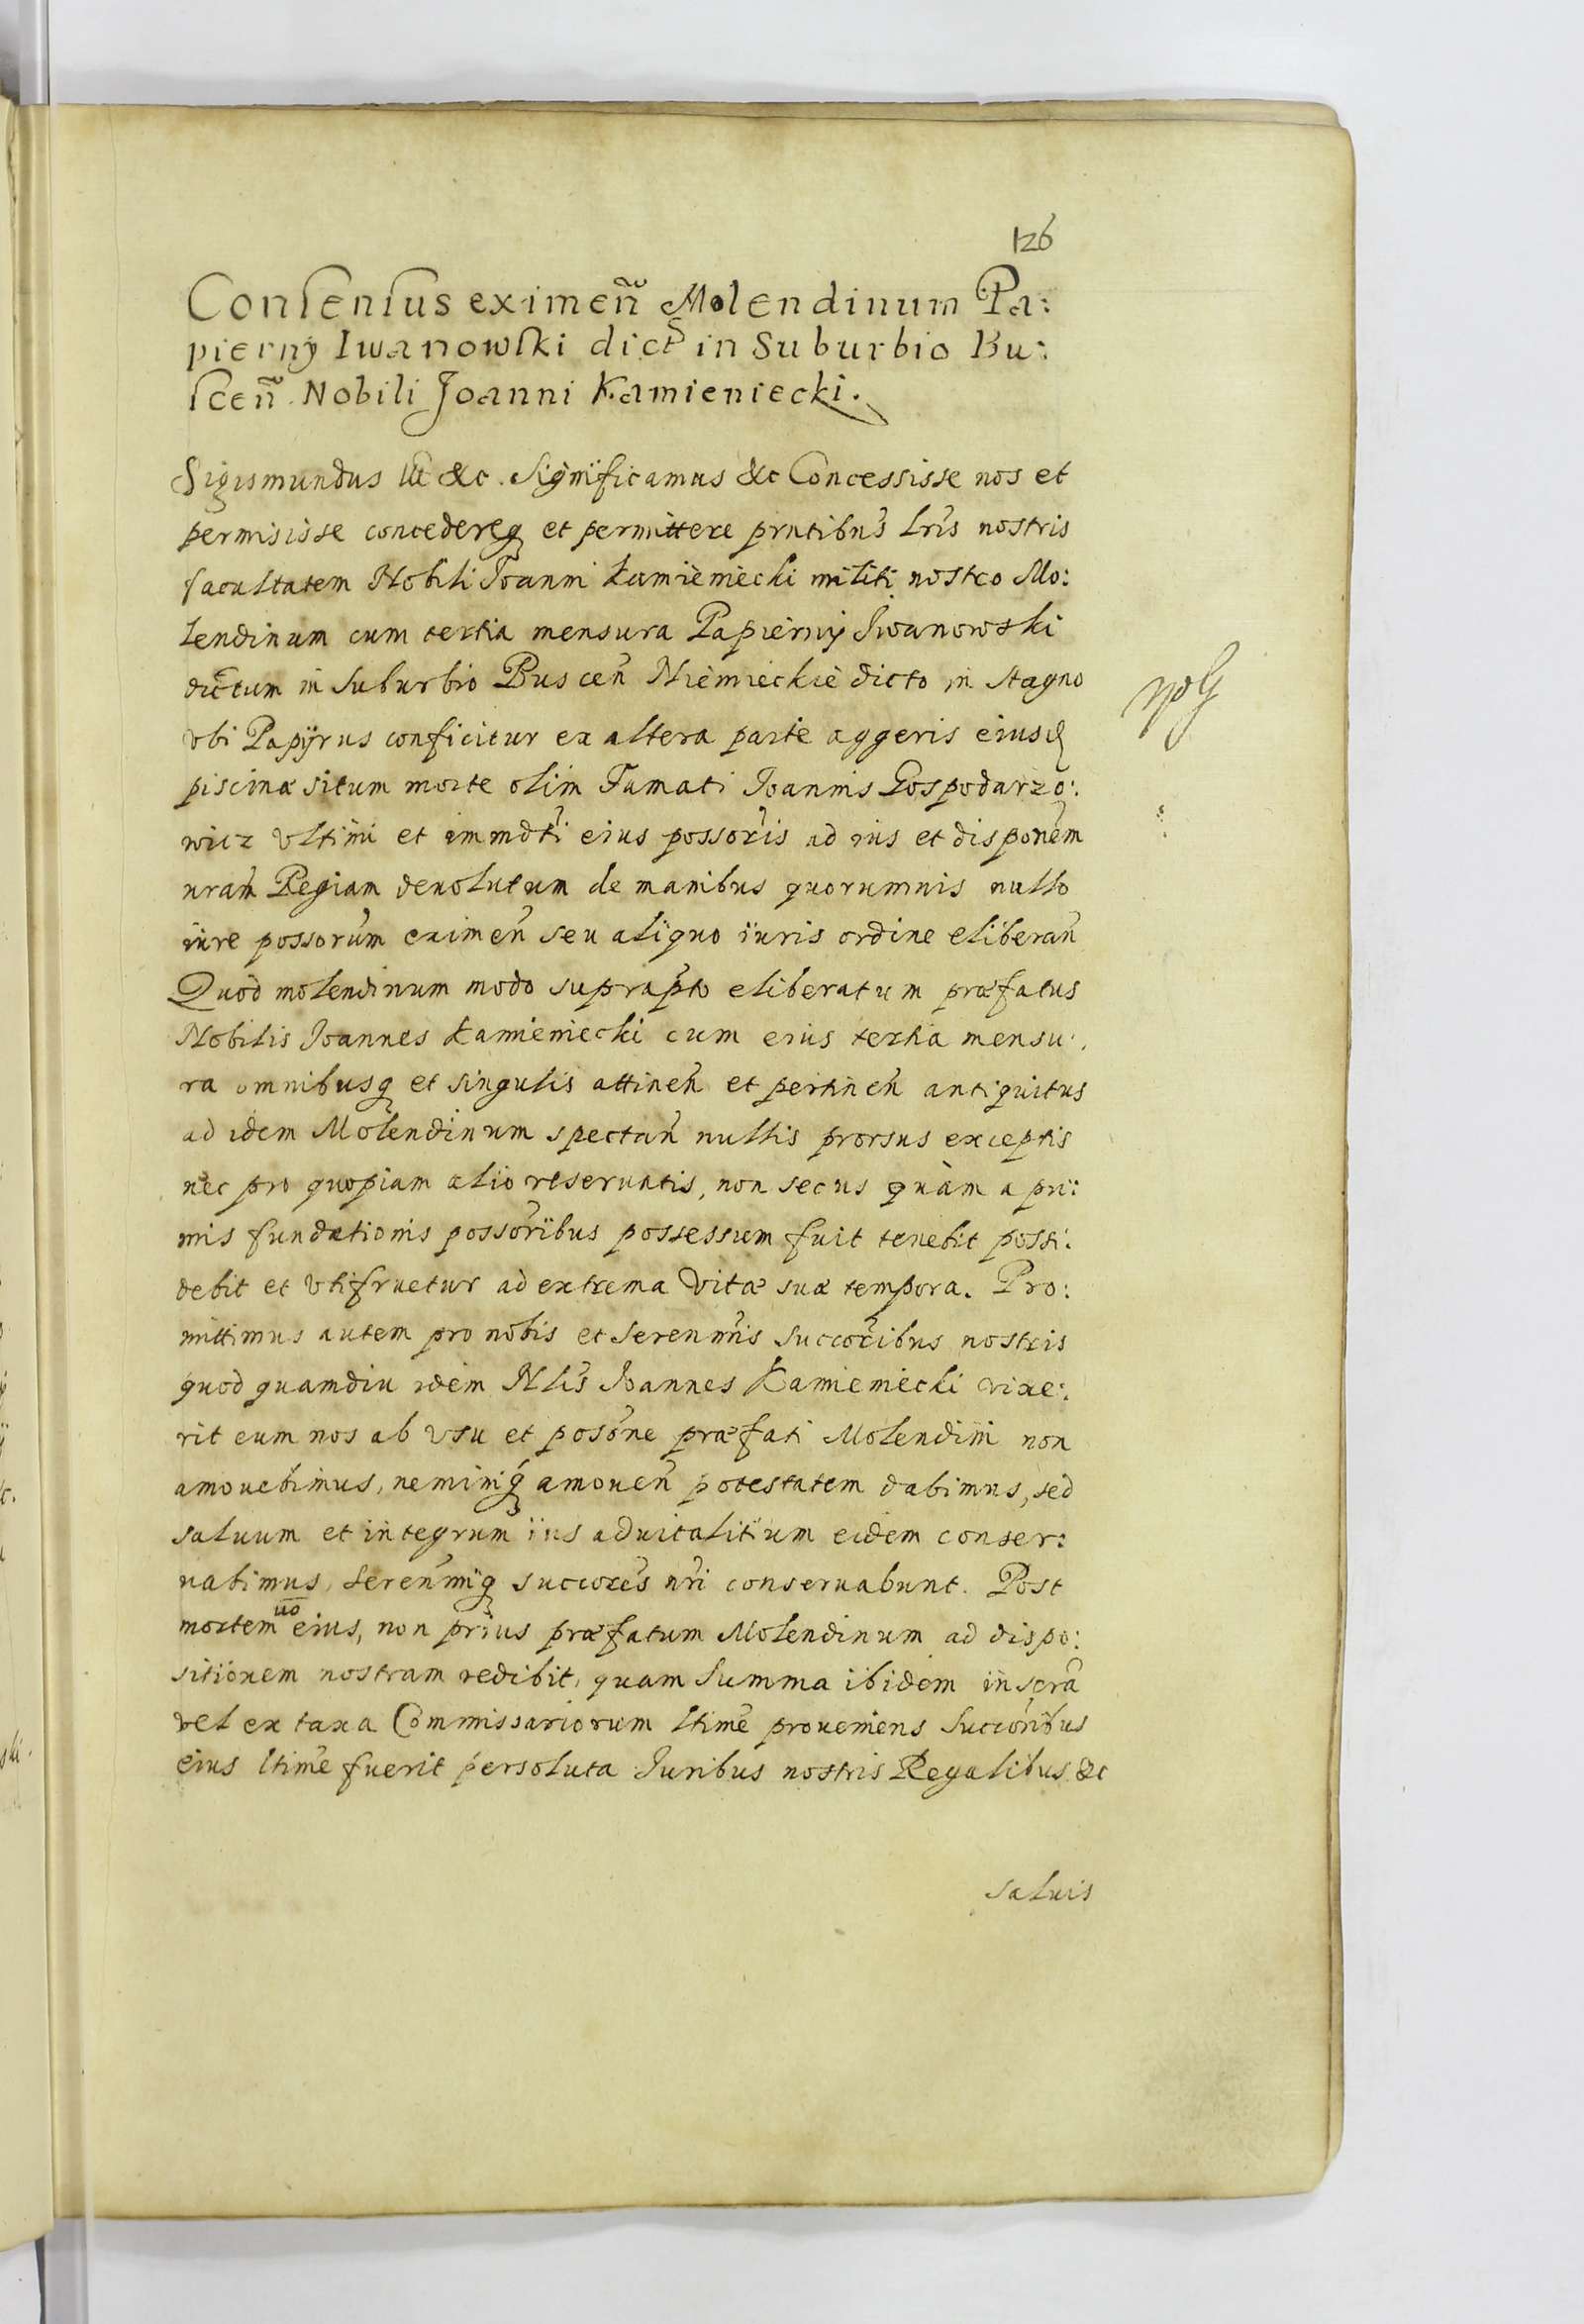 126
Consensus eximeñ Molendinum Pa:
pierny Iwanowski dict in Suburbio Bu:
sceñ Nobili Joanni Kamieniecki.
Sigismundus III &c. Significamus &c Concessisse nos et
permisisse concedereq et permittere prntibus Lris nostris
facultatem Nobili Joanni Kamieniecki militi nostro Mo:
lendinum cum tertia mensura Papierny Iwanowski
dictum in suburbio Buscen Niemieckie dicto in stagno
vbi Papyrus conficitur ex altera parte aggeris eiusd
piscinæ situm morte olim Famati Joannis Gospodarzo:
wicz vltimi et immdti eius possoris ad ius et disponem
nram Regiam deuolutum de manibus quorumuis nullo
iure possorum eximen seu aliquo iuris ordine eliberan
Quod molendinum modo suprapto eliberatum præfatus
Nobilis Joannes Kamieniecki cum eius tertia mensu:
ra omnibusq et singulis attinen et pertinen antiquitus
ad idem Molendinum spectan nullis prorsus exceptis
nec pro quopiam alio reseruatis, non secus quàm a pri:
mis fundationis possoribus possessum fuit tenebit possi:
debit et vtifruetur ad extrema vitæ suæ tempora. Pro:
mittimus autem pro nobis et serenmis succoribus nostris
quod quamdiu idem Nlis Joannes Kamieniecki vixe:
rit eum nos ab vsu et posone præfati Molendini non
amouebimus, neminiq amouen potestatem dabimus, sed
saluum et integrum ius aduitalitium eidem conser:
uabimus, serenmiq succores nri conseruabunt. Post
mortem uo eius, non prius præfatum Molendinum ad dispo:
sitionem nostram redibit, quam summa ibidem inscra
vel ex taxa Commissariorum ltime proueniens succoribus
eius ltime fuerit persoluta Iuribus nostris Regalibus &c
saluis